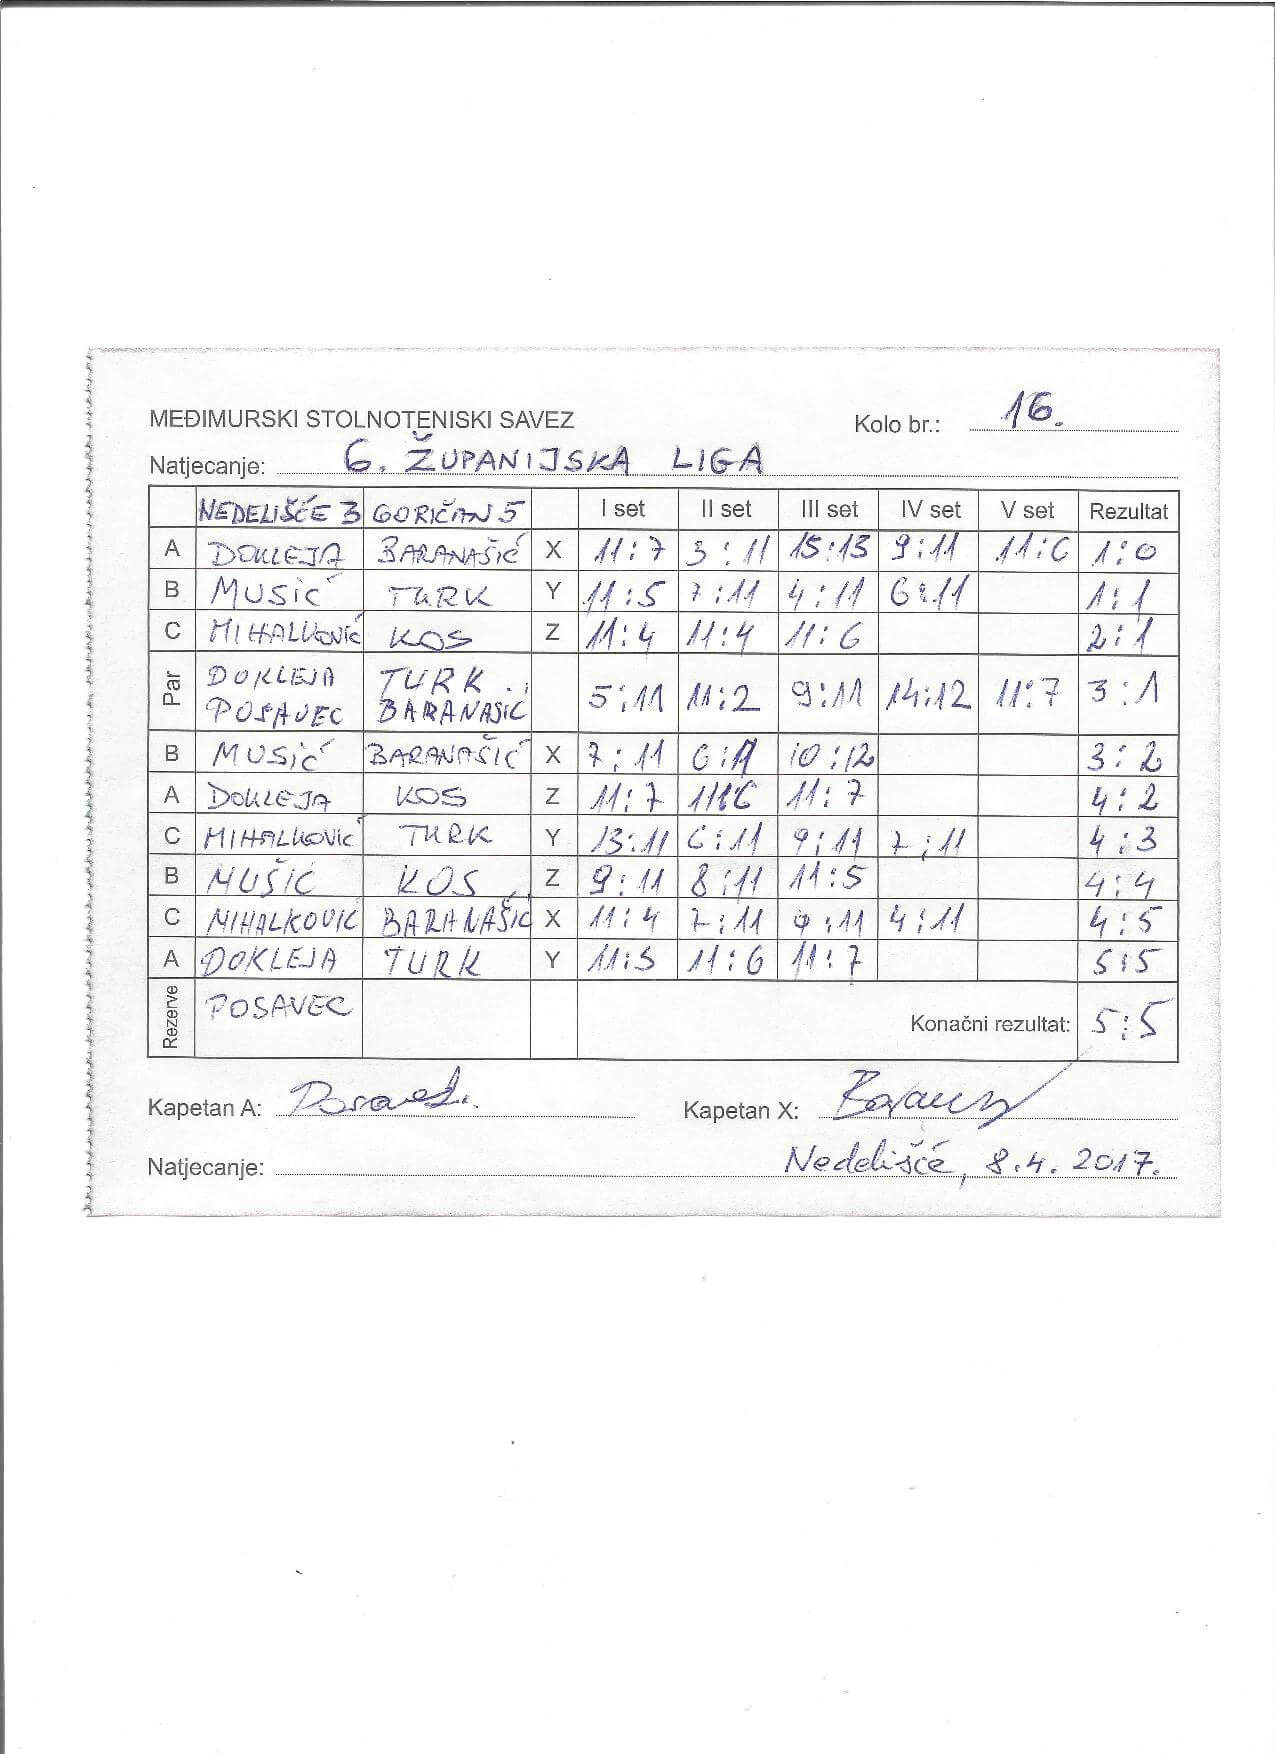 MEĐIMURSKI STOLNOTENISKI SAVEZ
Kolo br.: 16.
Natjecanje: 6. ŽUPANIJSKA LIGA
NEDELIŠĆE 3 GORIČAN 5 I set II set III set IV set V set Rezultat
A DOKLEJA BARANAŠIĆ X 11:7 3:11 15:13 9:11 11:6 1:0
B MUSIĆ TURK Y 11:5 7:11 4:11 6:11 1:1
C MIHALKOVIĆ KOS Z 11:4 11:4 11:6 2:1
Par DOKLEJA TURK 5:11 11:2 9:11 14:12 11:7 3:1
POSAVEC BARANASIC
B MUSIĆ BARANAŠIĆ X 7:11 6:11 10:12 3:2
A DOKLEJA KOS Z 11:7 11:6 11:7 4:2
C MIHALKOVIĆ TURK Y 13:11 6:11 9:11 7:11 4:3
B MUŠIĆ KOS Z 9:11 8:11 11:5 4:4
C MIHALKOVIĆ BARANAŠIĆ X 11:4 7:11 9:11 4:11 4:5
A DOKLEJA TURK Y 11:5 11:6 11:7 5:5
Rezerve POSAVEC Konačni rezultat: 5:5
Kapetan A: Posavec Kapetan X:
Natjecanje: Nedelišće, 8.4.2017.